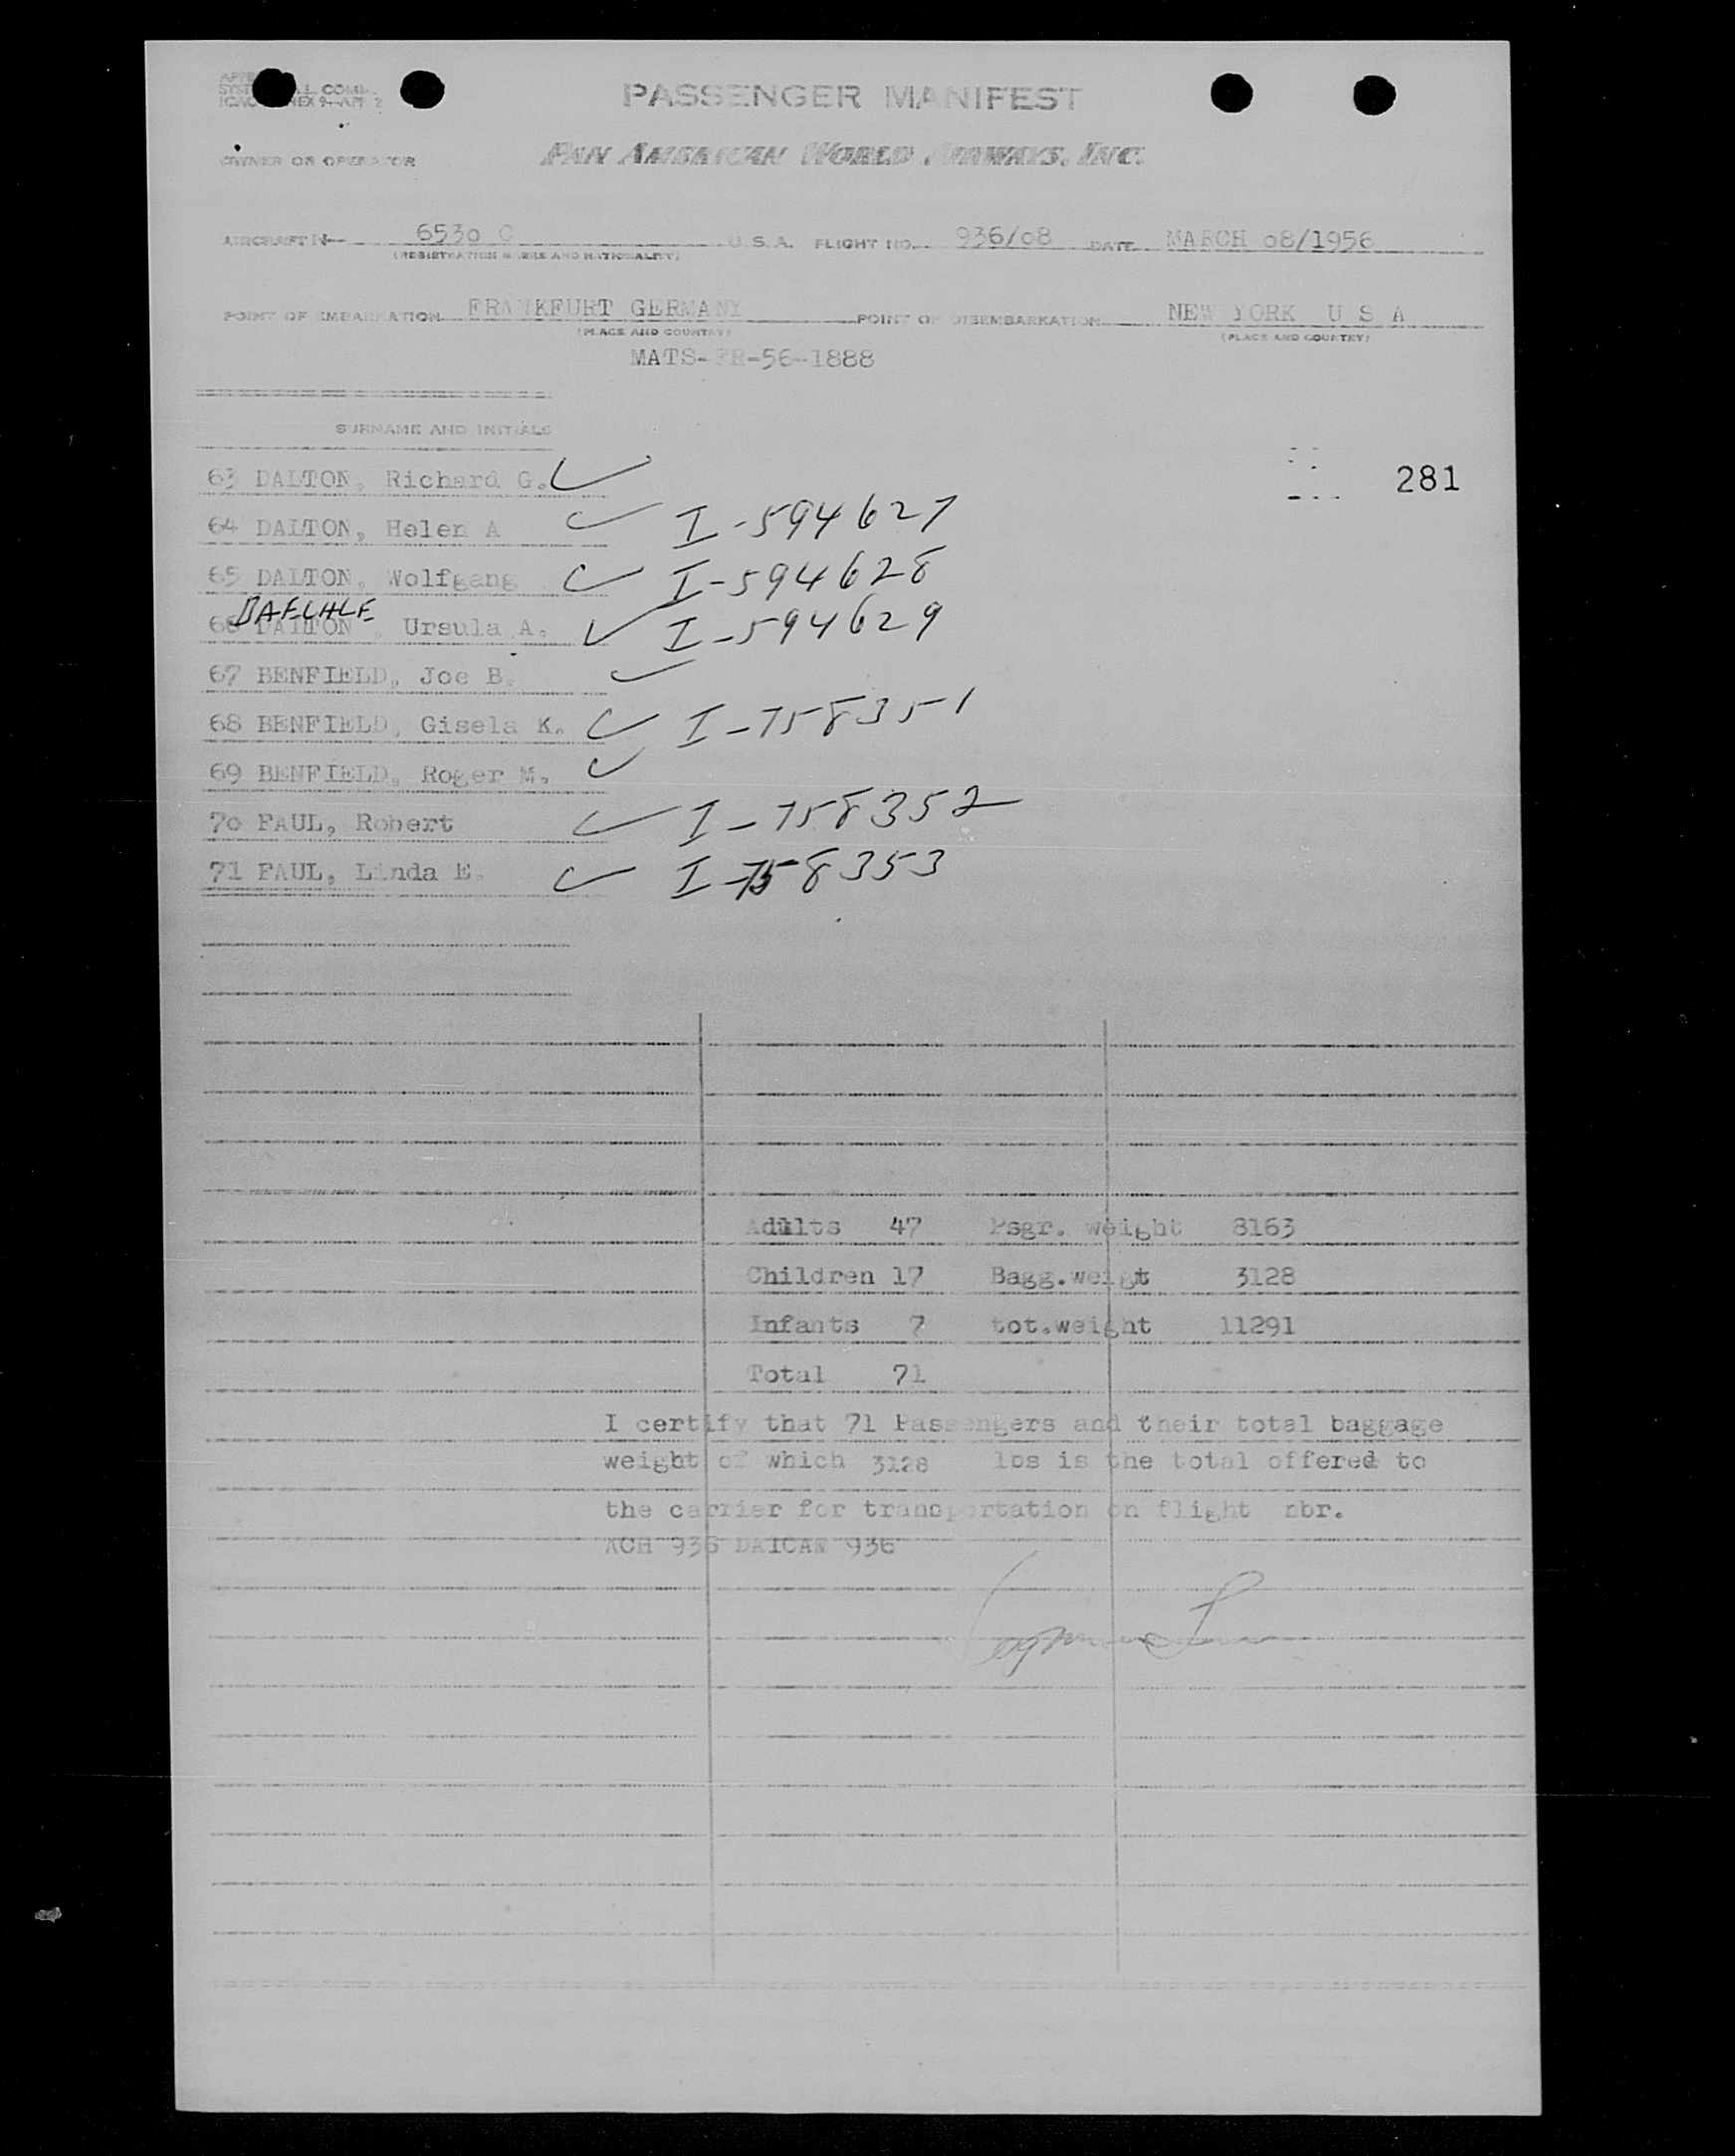 PASSENGER MANIFEST
OWNER OR OPERATOR PAN AMERICAN WORLD AIRWAYS, INC.
AIRCRAFT N 6530 C U.S.A. FLIGHT NO. 936/08 DATE MARCH 08/1956
(REGISTRATION MARKS AND NATIONALITY)
POINT OF EMBARKATION FRANKFURT GERMANY POINT OF DISEMBARKATION NEW YORK U S A
(PLACE AND COUNTRY) (PLACE AND COUNTRY)
MATS-FR-56-1888
SURNAME AND INITIALS
281
63 DALTON, Richard G.
64 DALTON, Helen A I-594627
65 DALTON, Wolfgang I-594628
BAECHLE
66 DALTON, Ursula A. I-594629
67 BENFIELD, Joe B.
68 BENFIELD, Gisela K. I-758351
69 BENFIELD, Roger M.
70 PAUL, Robert I-758352
71 PAUL, Linda E. I-758353
Adults 47 Psgr. weight 8163
Children 17 Bagg.weigt 3128
Infants 7 tot.weight 11291
Total 71
I certify that 71 Passengers and their total baggage
weight of which 3128 lbs is the total offered to
the carrier for transportation on flight nbr.
ACH 936 DAICAN 936